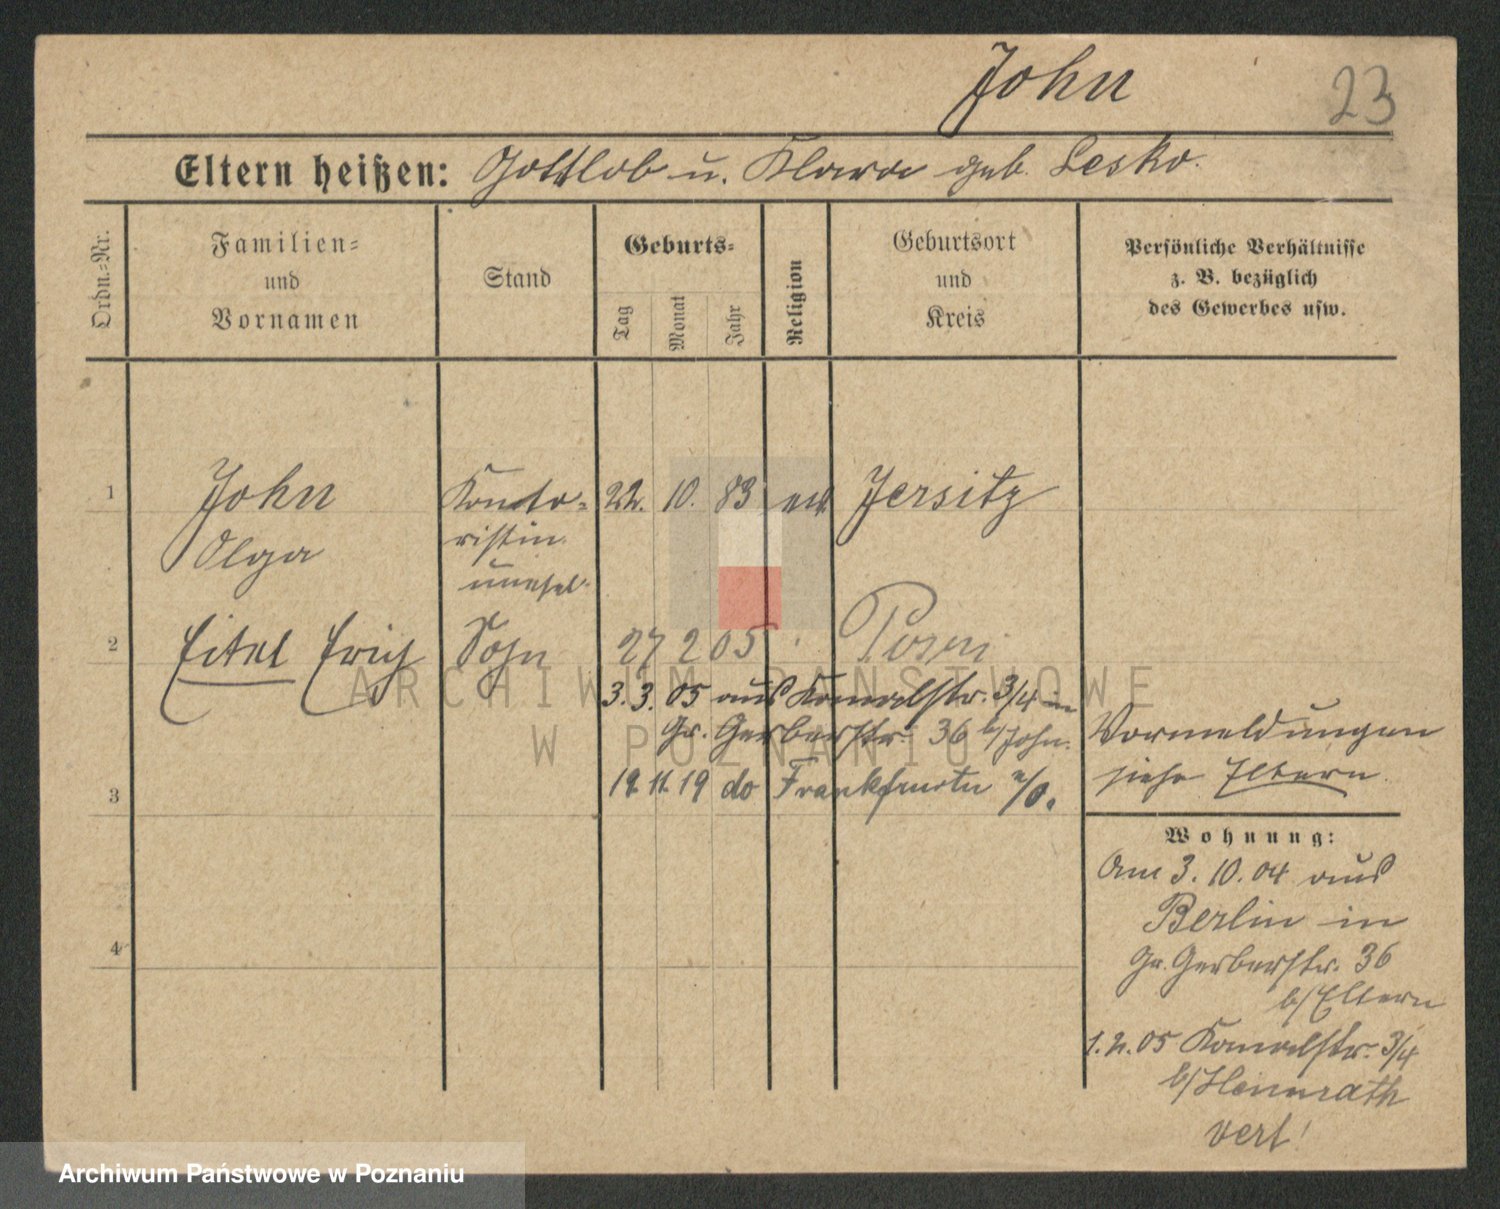 John
23
Eltern heißen: Gottlob u. Klara geb. Lesko.
Ordn.=Nr.
Familien= und Vornamen
Stand
Geburts=
Tag
Monat
Jahr
Religion
Geburtsort und Kreis
Persönliche Verhältnisse
z. B. bezüglich
des Gewerbes usw.
1
John Konto= 22. 10. 83 ev Jersitz
Olga ristin
unehel.
2
Eitel Erich Sohn 27 2 05 Posen
3. 3. 05 aus Kanalstr. 3/4 in
Gr. Gerberstr. 36 b/John.
3
19. 11. 19 do Frankfurt a/O.
4
Vormeldungen
siehe Eltern
Wohnung:
Am 3. 10. 04 aus
Berlin in
Gr. Gerberstr. 36
b/Eltern
1. 2. 05 Kanalstr. 3/4
b/
verl!
ARCHIWUM PAŃSTWOWE
W POZNANIU
Archiwum Państwowe w Poznaniu